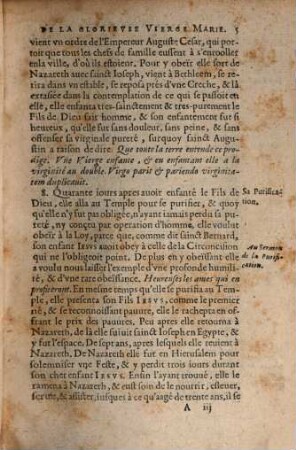 DE LA GLORIEVSE VIERGE MARIE. 5
vient vn ordre de l'Empereur Auguste Cesar, qui por
toit que tous les chefs de famille eussent à s'enrooller
en la ville, d'où ils estoient. Pour y obeïr elle sort de
Nazareth auec sainct Ioseph, vient à Bethleem, se re
tira dans vn estable, se reposa prés d'vne Creche, & là
extasiée dans la contemplation de ce qui se passoit en
elle, elle enfanta tres-sainctement & tres-purement le
Fils de Dieu fait homme, & son enfantement fut si
heureux, qu'elle fut sans douleur, sans peine, & sans
offenser sa virginale pureté, surquoy sainct Augu-
stin a raison de dire. Que toute la terre entende ce pro-
dige. Vne Vierge enfante, & en enfantant elle a la
virginité au double. Virgo parit & pariendo virginita-
tem duplicauit.
8. Quarante iours apres auoir enfanté le Fils de
Dieu, elle alla au Temple pour se purifier, & quoy
qu'elle n'y fut pas obligée, n'ayant iamais perdu sa pu-
reté, ny conçeu par operation d'homme, elle voulut
obeïr à la Loy, parce que, comme dit sainct Bernard,
son enfant IESVS auoit obey à celle de la Circoncision
qui ne l'obligeoit point. De plus en y obeïssant elle
a voulu nous laisser l'exemple d'vne profonde humili-
té, & d'vne rare obeïssance. Heureuses les ames qui en
profiteront. En mesme temps qu'elle se purifia au Tem-
ple, elle presenta son Fils IESVS, comme le premier
né, & se reconnoissant pauure, elle le racheta en of-
frant le prix des pauures. Peu apres elle retourna à
Nazareth, de là elle suiuit sainct Ioseph en Egypte, &
y fut l'espace. De sept ans, apres lesquels elle reuient à
Nazareth, De Nazareth elle fut en Hierusalem pour
solemniser vne Feste, & y perdit trois iours durant
son cher enfant IESVS. Enfin l'ayant trouué, elle le
ramena à Nazareth, & eust soin de le nourrir, esleuer,
seruir, & assister, iusques à ce qu'aagé de trente ans, il se
A iij
Sa Purifica-
tion.
Au Sermon
de la Purifi-
cation.